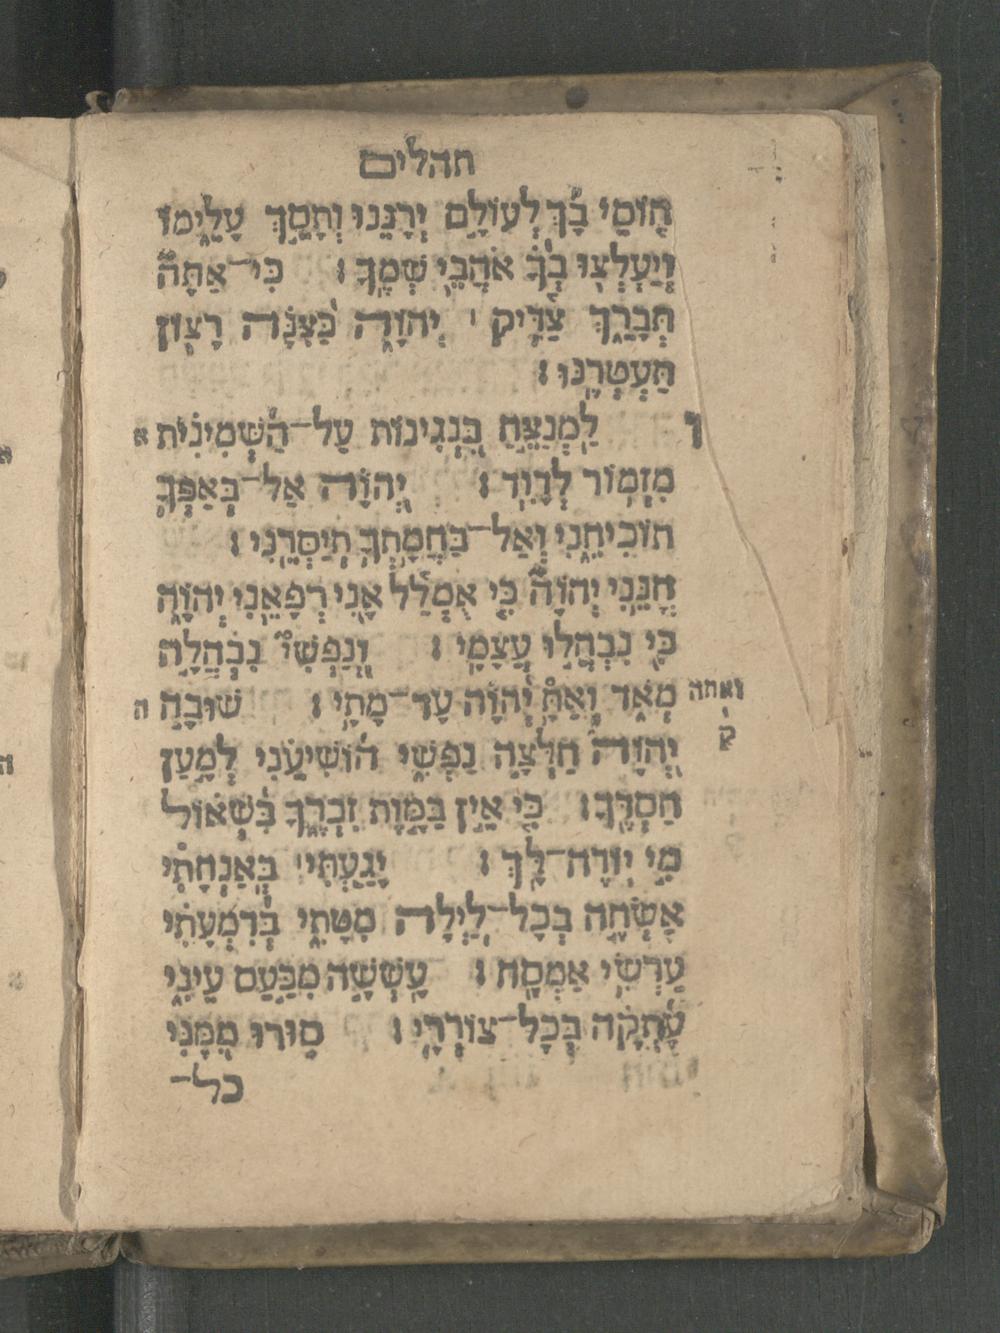 תהלים
חוֹסֵי בָךְ לְעוֹלָם יְרַנֵּנוּ וְתָסֵךְ עָלֵימוֹ
וְיַעְלְצוּ בְךָ אֹהֲבֵי שְׁמֶךָ׃ כִּי־אַתָּה
תְּבָרֵךְ צַדִּיק יְהוָה כַּצִּנָּה רָצוֹן
תַּעְטְרֶנּוּ׃
ו לַמְנַצֵּחַ בִּנְגִינוֹת עַל־הַשְּׁמִינִית א
מִזְמוֹר לְדָוִד׃ יְהוָה אַל־בְּאַפְּךָ
תוֹכִיחֵנִי וְאַל־בַּחֲמָתְךָ תְיַסְּרֵנִי׃
חָנֵּנִי יְהוָה כִּי אֻמְלַל אָנִי רְפָאֵנִי יְהוָה
כִּי נִבְהֲלוּ עֲצָמָי׃ וְנַפְשִׁי נִבְהֲלָה
מְאֹד וְאַתָּ יְהוָה עַד־מָתָי׃ שׁוּבָה ה
ואתה
ק
יְהוָה חַלְּצָה נַפְשִׁי הוֹשִׁיעֵנִי לְמַעַן
חַסְדֶּךָ׃ כִּי אֵין בַּמָּוֶת זִכְרֶךָ בִּשְׁאוֹל
מִי יוֹדֶה־לָּךְ׃ יָגַעְתִּי בְּאַנְחָתִי
אַשְׂחֶה בְכָל־לַיְלָה מִטָּתִי בְּדִמְעָתִי
עַרְשִׂי אַמְסֶה׃ עָשְׁשָׁה מִכַּעַס עֵינִי
עָתְקָה בְּכָל־צוֹרְרָי׃ סוּרוּ מִמֶּנִּי
כל־